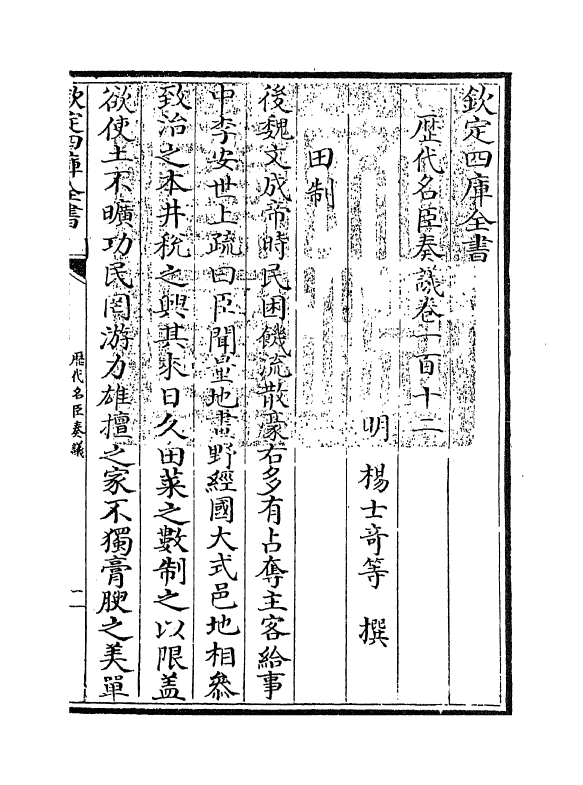 欽定四庫全書
歴代名臣奏議卷一百十二
明　楊士奇等　撰
田制
後魏文成帝時民困饑流散豪右多有占奪主客給事
中李安世上疏曰臣聞量地畫野經國大式邑地相參
致治之本井稅之興其來日久田萊之數制之以限盖
欲使土不曠功民罔游力雄擅之家不獨膏腴之美單
欽定四庫全書
歴代名臣奏議